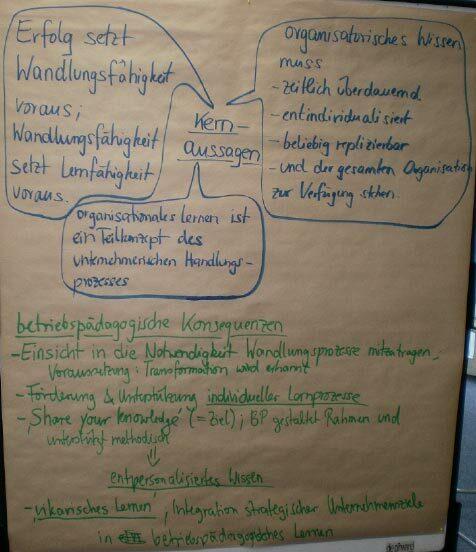 Erfolg setzt
Wandlungsfähigkeit
voraus;
Wandlungsfähigkeit
setzt Lernfähigkeit
voraus.
Kern-
aussagen
organisatorisches Wissen
muss
- zeitlich überdauernd
- entindividualisiert
- beliebig replizierbar
- und der gesamten Organisation
zur Verfügung stehen.
organisationales lernen ist
ein Teilkonzept des
unternehmerischen Handlungs-
prozesses
betriebspädagogische Konsequenzen
- Einsicht in die Notwendigkeit Wandlungsprozesse mitzutragen,
Voraussetzung: Transformation wird erkannt
- Förderung & Unterstützung individueller Lernprozesse
- 'Share your knowledge' (= Ziel); BP gestaltet Rahmen und
unterstützt methodisch
⇓
entpersonalisiertes Wissen
- vikarisches Lernen, Integration strategischer Unternehmensziele
in betriebspädagogisches Lernen